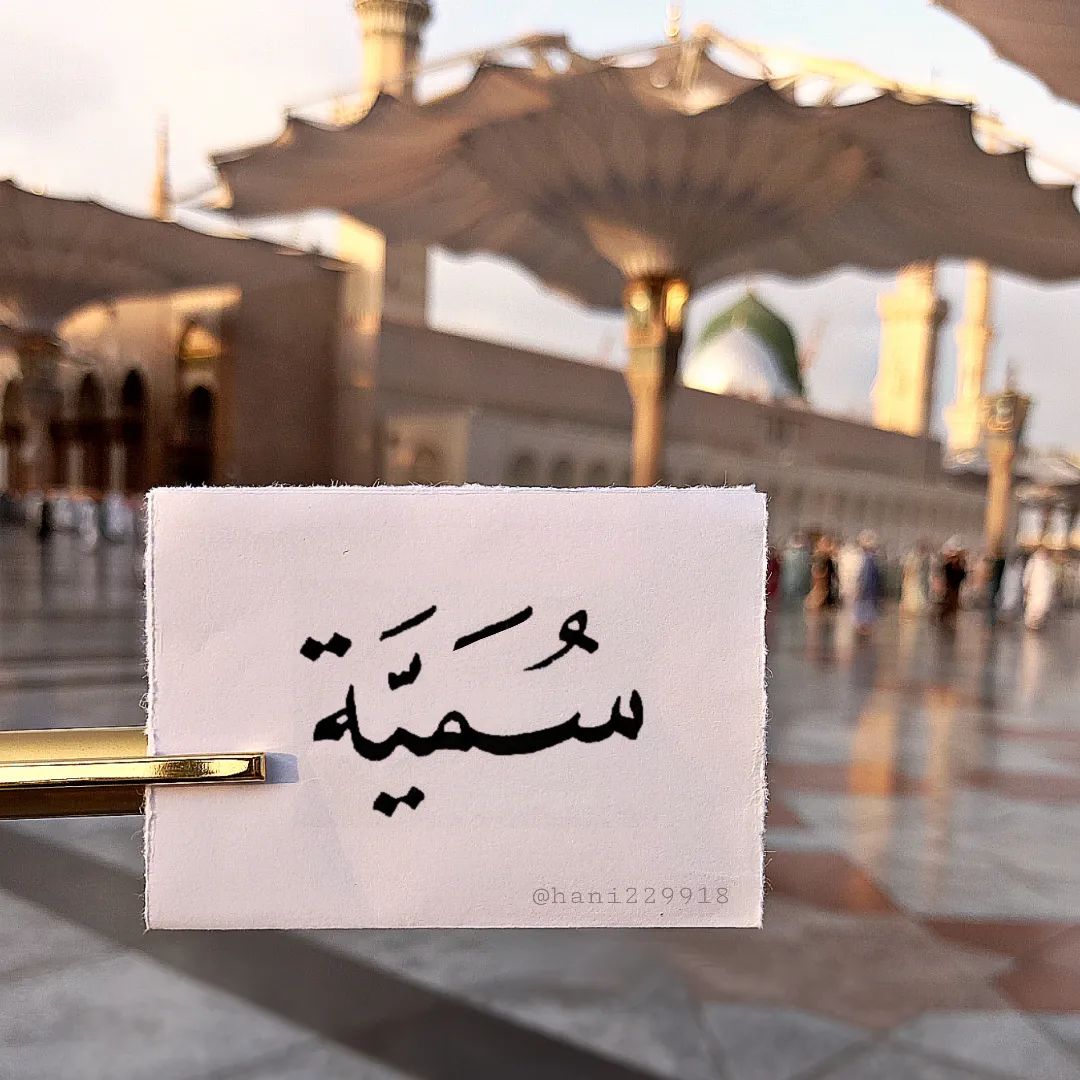 سُمَيَّة
@hani229918